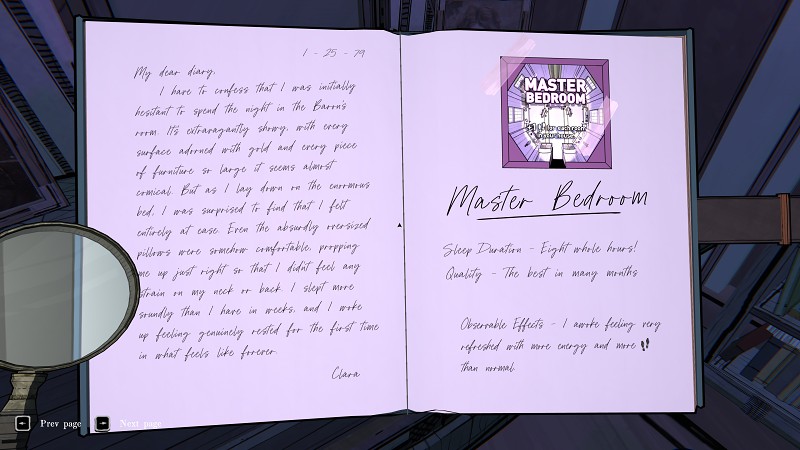 1 - 25 - 79
My dear diary,
I have to confess that I was initially
hesitant to spend the night in the Baron's
room. It's extravagantly showy, with every
surface adorned with gold and every piece
of furniture so large it seems almost
comical. But as I lay down on the enormous
bed, I was surprised to find that I felt
entirely at ease. Even the absurdly oversized
pillows were somehow comfortable, propping
me up just right so that I didn't feel any
strain on my neck or back. I slept more
soundly than I have in weeks, and I woke
up feeling genuinely rested for the first time
in what feels like forever.
Clara
MASTER
BEDROOM
for each room
in your house
Master Bedroom
Sleep Duration - Eight whole hours!
Quality - The best in many months
Observable Effects - I awoke feeling very
refreshed with more energy and more
than normal.
Prev page
Next page